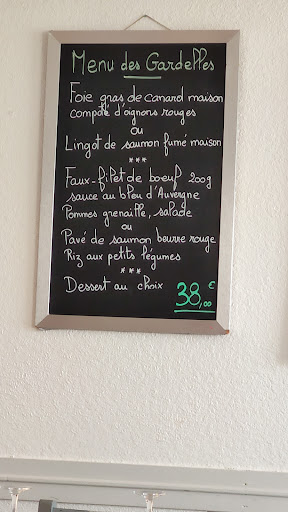 Menu des Gardelles
Foie gras de canard maison
compoté d'oignons rouges
ou
Lingot de saumon fumé maison
***
Faux-filet de boeuf 200g
sauce au bleu d'Auvergne
Pommes grenaille, salade
ou
Pavé de saumon beurre rouge
Riz aux petits légumes
***
Dessert au choix 38,00€